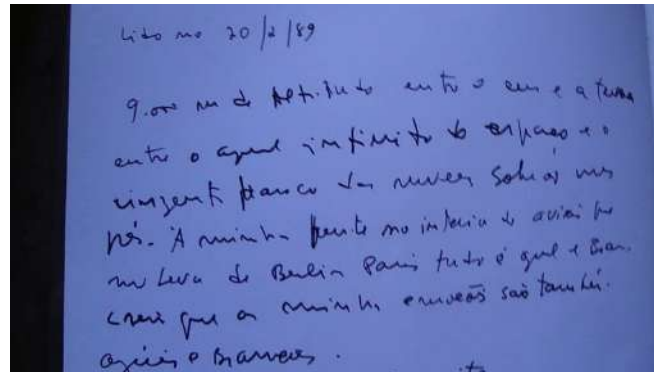 Lido no 20/2/89
9.000 m de altitude entre o céu e a terra
entre o azul infinito do espaço e o
branco das nuvens sob os meus
pés. À minha frente no interior do avião que
me leva de Berlin Paris tudo é azul e
que as minhas emoções são também.
azuis e brancas.